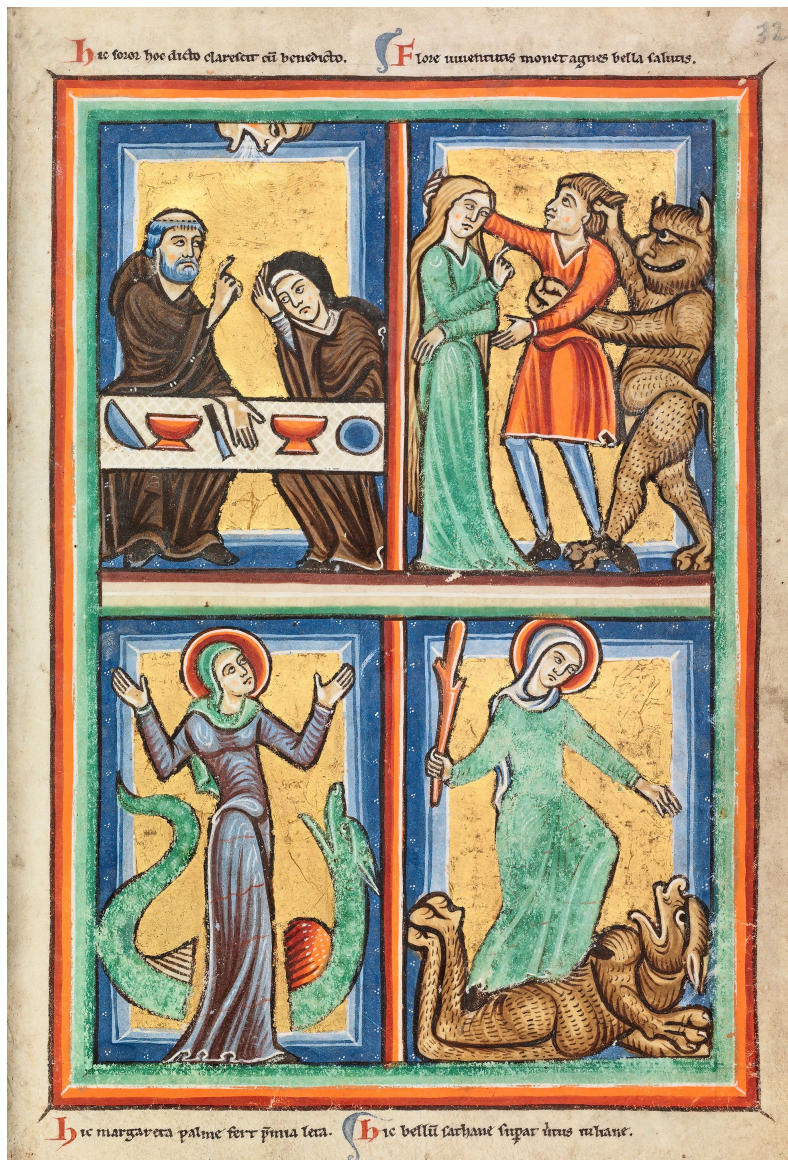 hic soror hoc dicto clarescit cū benedicto.
Flore iuuentutis monet agnes bella salutis.
32
hic margareta palme fert p̄mia leta.
hic bellū sathane sup̄at uirtus iuliane.